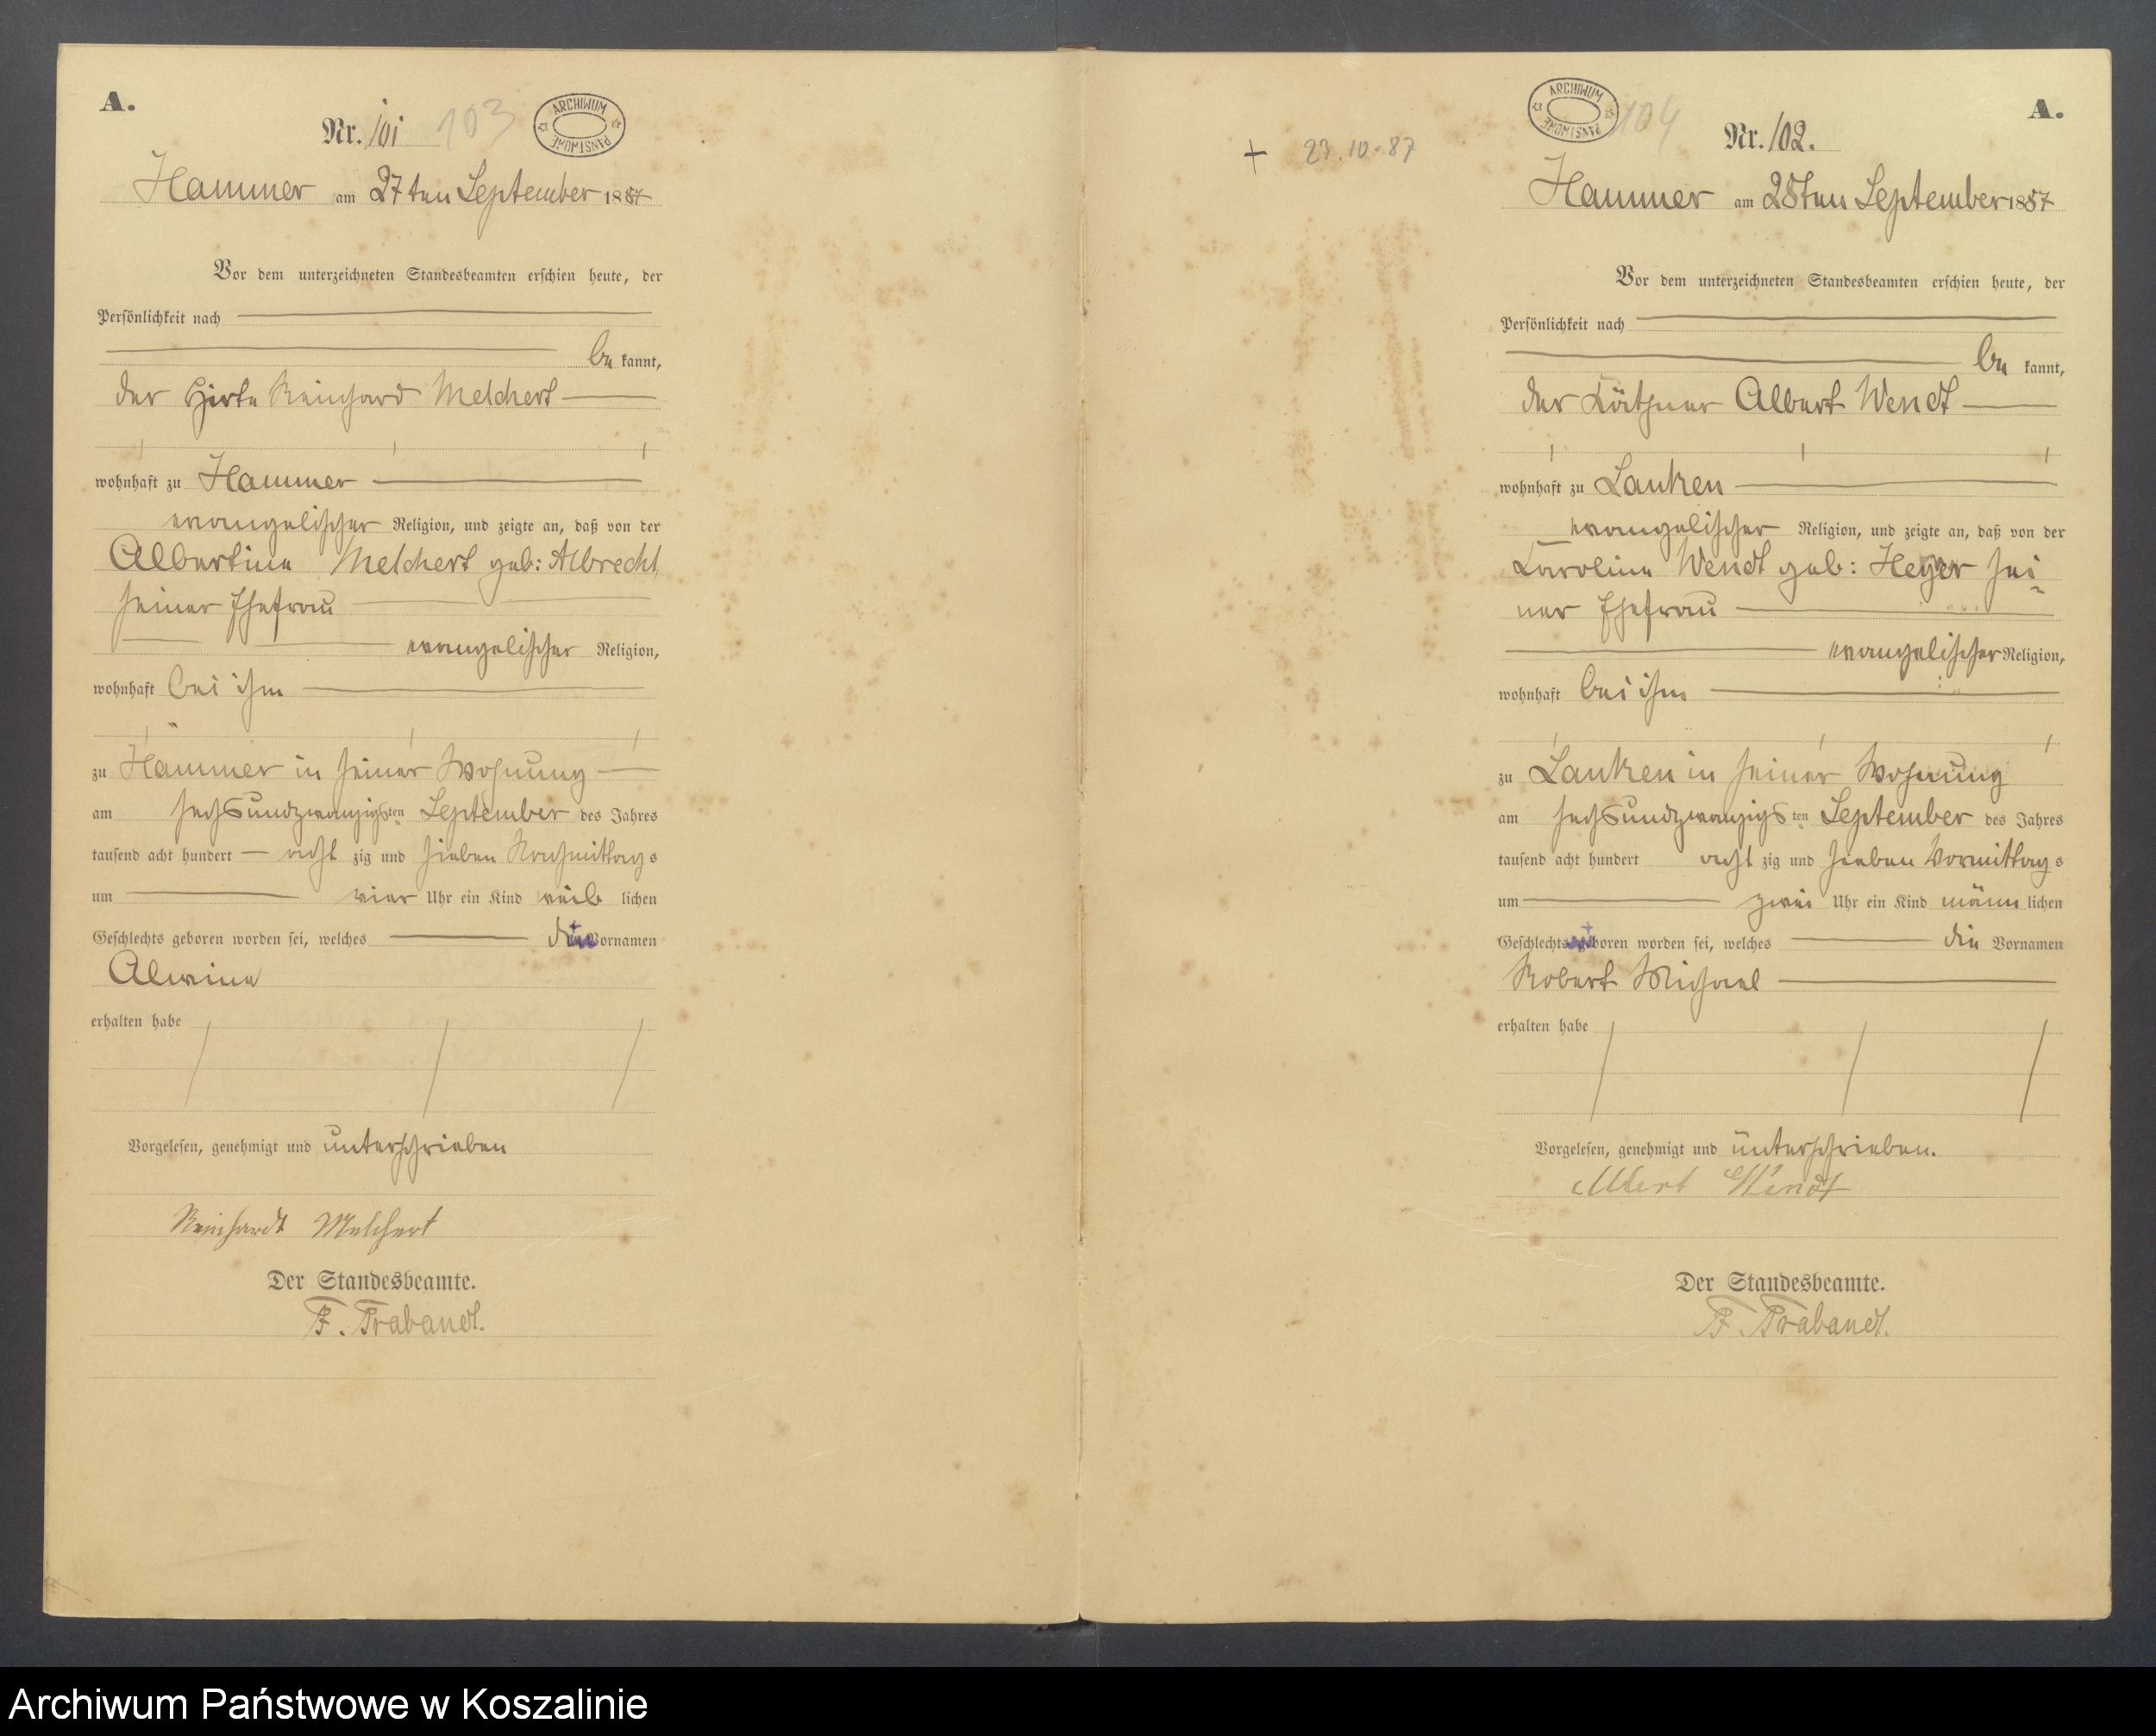 A.
Nr. 101 103
ARCHIWUM PAŃSTWOWE
Hammer am 27ten September 1887
Vor dem unterzeichneten Standesbeamten erschien heute, der
Persönlichkeit nach
be kannt,
der Hirte Reinhard Melchert
wohnhaft zu Hammer
evangelischer Religion, und zeigte an, daß von der
Albertine Melchert geb: Albrecht
seiner Ehefrau
evangelischer Religion,
wohnhaft bei ihm
zu Hammer in seiner Wohnung
am sechsundzwanzigsten September des Jahres
tausend acht hundert acht zig und sieben Nachmittags
um vier Uhr ein Kind weib lichen
Geschlechts geboren worden sei, welches die Vornamen
Alwine
erhalten habe
Vorgelesen, genehmigt und unterschrieben
Reinhardt Melchert
Der Standesbeamte.
F. Trabandt.
A.
ARCHIWUM PAŃSTWOWE
104
Nr. 102.
+ 23.10.87
Hammer am 28ten September 1887
Vor dem unterzeichneten Standesbeamten erschien heute, der
Persönlichkeit nach
be kannt,
der Käthner Albert Wendt
wohnhaft zu Lanken
evangelischer Religion, und zeigte an, daß von der
Karoline Wendt geb: Heyer sei
ner Ehefrau
evangelischer Religion,
wohnhaft bei ihm
zu Lanken in seiner Wohnung
am sechsundzwanzigsten September des Jahres
tausend acht hundert acht zig und sieben Vormittags
um zwei Uhr ein Kind männ lichen
Geschlechts geboren worden sei, welches die Vornamen
Robert Michael
erhalten habe
Vorgelesen, genehmigt und unterschrieben.
Albert Wendt
Der Standesbeamte.
F. Trabandt.
Archiwum Państwowe w Koszalinie